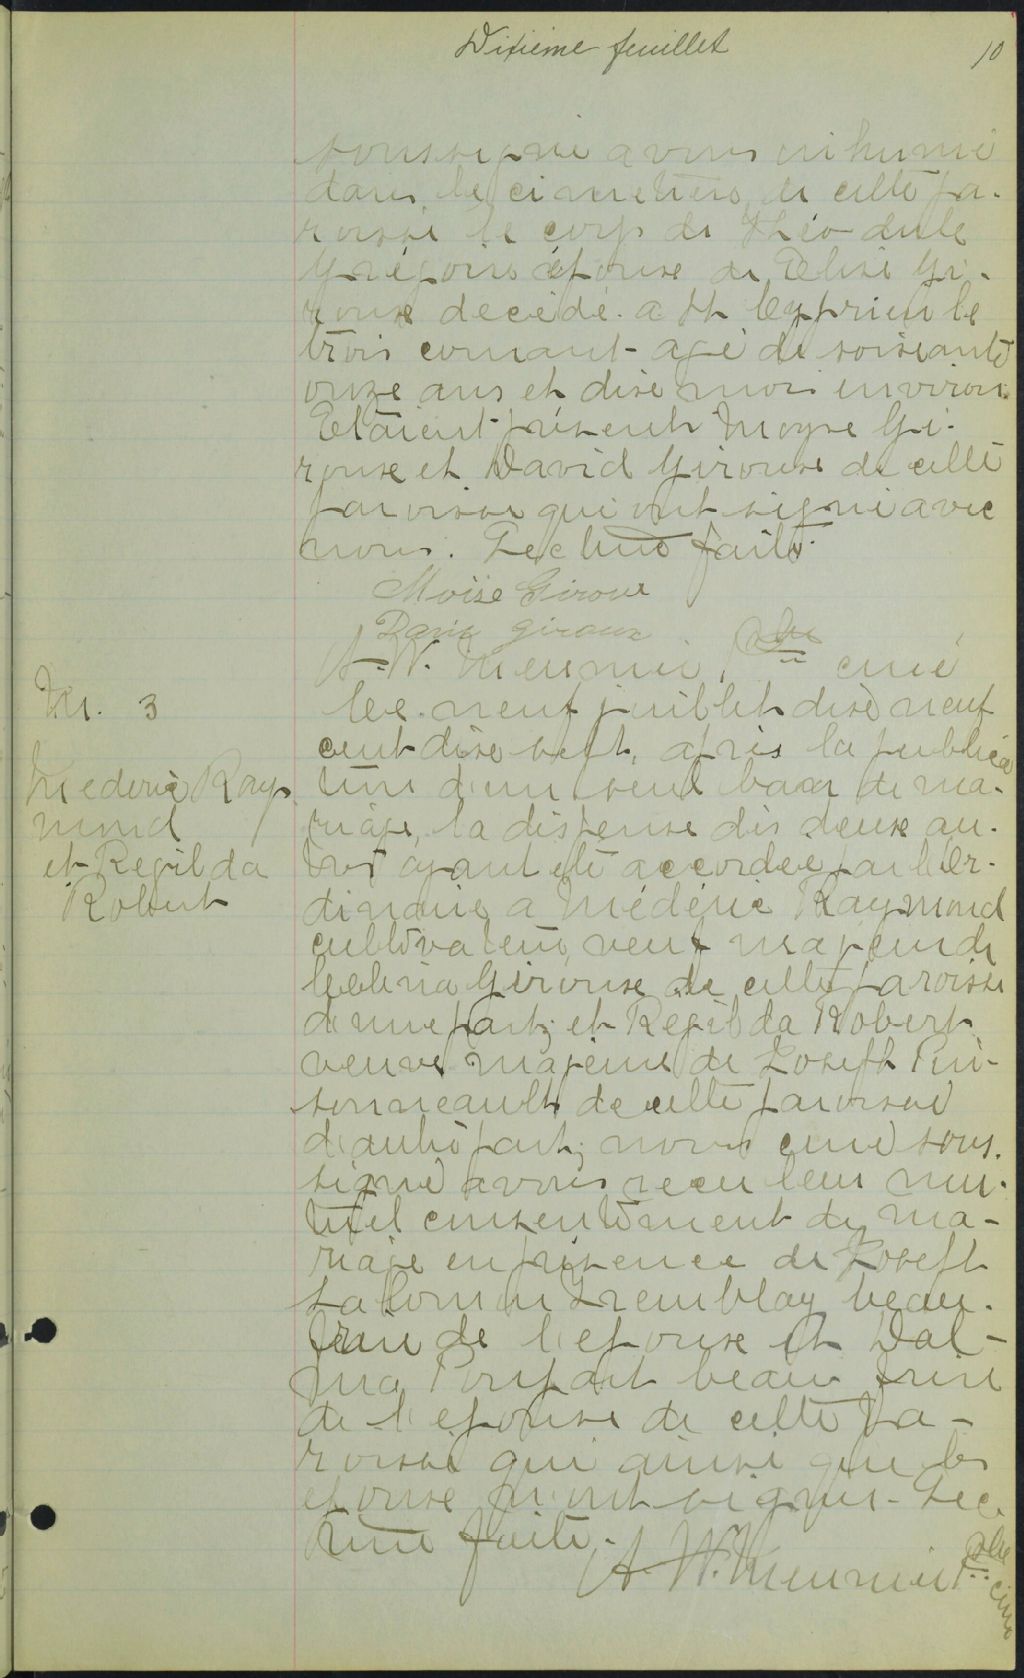 Dixième feuillet
10
soussigné avons inhumé
dans le cimetière de cette pa-
roisse le corps de Théodule
Grégoire épouse de Elise Gi-
roux decédé a St Cyprien le
trois courant agé de soixante
onze ans et dix mois environ.
Etaient présents Moyse Gi-
roux et David Giroux de cette
paroisse qui ont signé avec
nous. Lecture faite.
Moïse Giroux
David Giroux
A. W. Meunier, Ptre curé
M. 3
Mederic Ray
mond
et Regilda
Robert
Le neuf juillet dix neuf
cent dix sept, après la publica
tion d'un seul ban de ma-
riage, la dispense des deux au-
tres ayant été accordée par l'Or-
dinaire a Médéric Raymond
cultivateur, veuf majeur de
Celina Giroux de cette paroisse
d'une part; et Regilda Robert
veuve majeure de Joseph Pin-
sonneault de cette paroisse
d'autre part; nous curé sous-
signé avons reçu leur mu-
tuel consentement de ma-
riage en présence de Joseph
Salomon Tremblay beau-
frère de l'epouse et Dal-
ma Poupart beau frère
de l'epouse de cette pa-
roisse qui ainsi que les
epoux n'ont signés. Lec-
ture faite.
A. W. Meunier Ptre curé